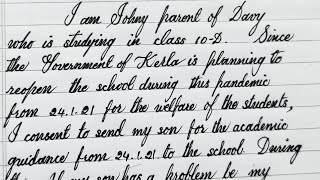 I am Johny parent of Davy
who is studying in class 10-D. Since
the Government of Kerla is planning to
reopen the school during this pandemic
from 24.1.21 for the welfare of the students,
I consent to send my son for the academic
guidance from 24.1.21 to the school. During
my son has a problem be my